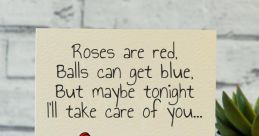 Roses are red,
Balls can get blue,
But maybe tonight
I'll take care of you...